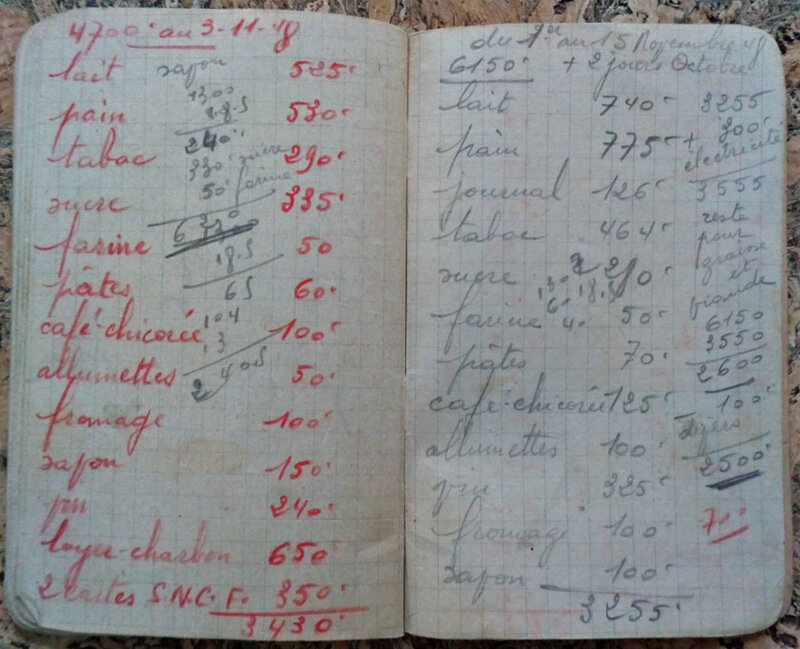 4700 au 3-11-48
lait 525
pain 530
tabac 290
sucre 335
farine 50
pâtes 60
café-chicorée 100
allumettes 50
fromage 100
savon 150
240
loyer-charbon 650
2 cartes S.N.C.F. 350
3430
savon
1300
18.5
240
330 sucre
50 farine
18.5
65
104
13
240.5
du 1er au 15 Novembre 48
6150 + 2 jours Octobre
lait 740
pain 775
journal 126
tabac 464
sucre 210
farine 50
pâtes 70
café-chicorée 125
allumettes 100
vin 325
fromage 100
savon 100
3255
3255
+ 300
électricité
3555
reste
pour
graisse
et
viande
6150
3550
2600
- 100
divers
2500